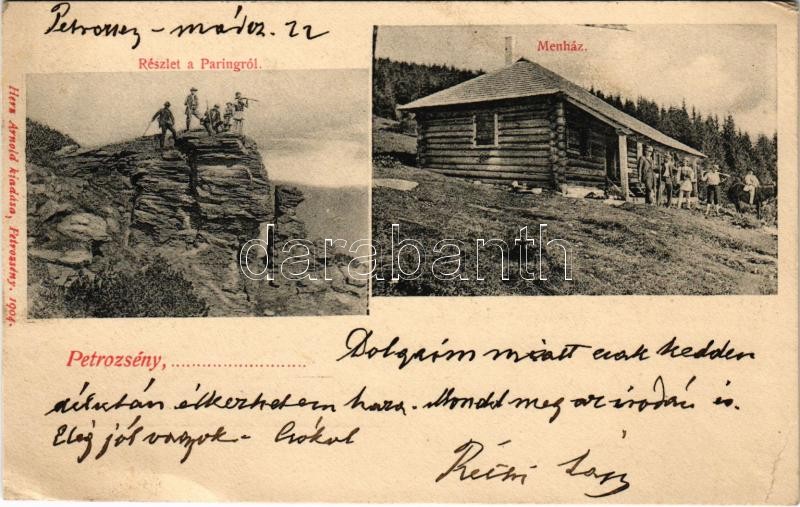 Petrozsény - márcz. 22
Részlet a Paringról.
Menház.
Herz Arnold kiadása, Petrozsény. 1904.
darabanth
Petrozsény,
Dolgaim miatt csak kedden
délután érkezhetem haza. Mondd meg az irodán is.
Elég jól vagyok - Csókol